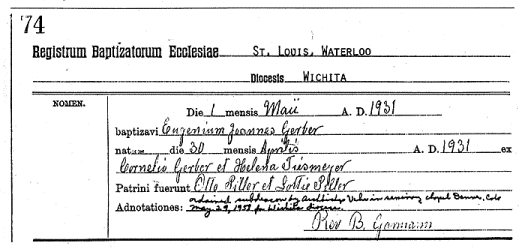 74
Registrum Baptizatorum Ecclesiae ST. LOUIS, WATERLOO
Diocesis WICHITA
NOMEN.
Die 1 mensis Maii A. D. 1931
baptizavi Eugenium Joannes Gerber
nat die 30 mensis Aprilis A. D. 1931 ex
Cornelio Gerber et Helena Triesmeyer
Patrini fuerunt Otto Piller et Lottie Piller
Adnotationes: ordained subdeacon by Archbishop Vehr in seminary chapel Denver, Colo
May 29, 1958 for Wichita Diocese.
Rev B. Gorman